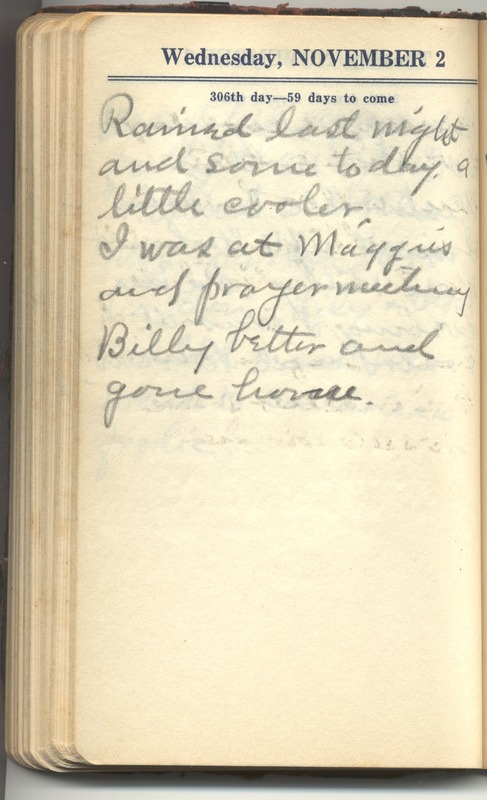 Wednesday, NOVEMBER 2
306th day—59 days to come
Rained last night
and some today. a
little cooler.
I was at Maggies
and prayer meeting
Billy better and
gone home.